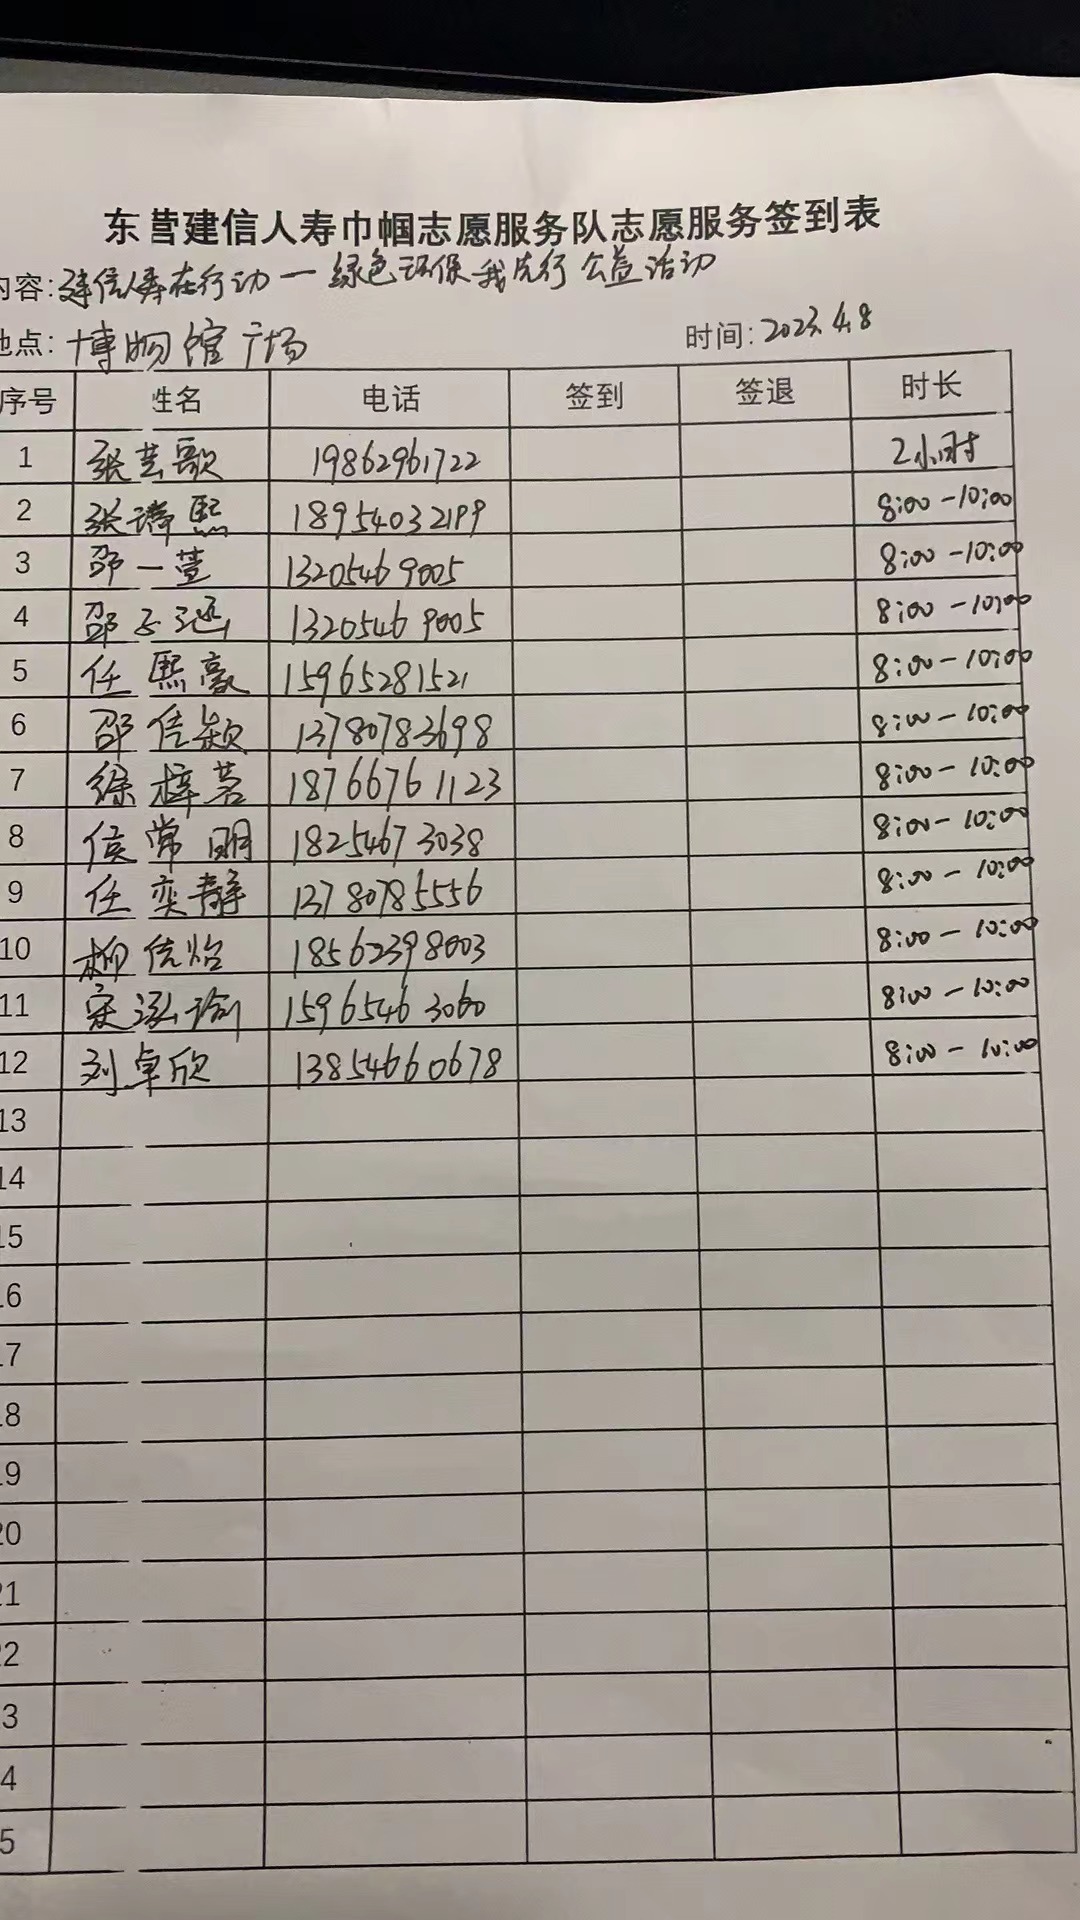 东营建信人寿巾帼志愿服务队志愿服务签到表
内容:建信人寿在行动一绿色环保我先行公益活动
地点:博物馆广场 时间:2023.4.8
序号 姓名 电话 签到 签退 时长
1 张芸歌 19862961722 2小时
2 张 熙 18954032199 8:00-10:00
3 邵一萱 13205469005 8:00-10:00
4 邵子涵 13205469005 8:00-10:00
5 任熙豪 15965281521 8:00-10:00
6 邵佳颖 13780783698 8:00-10:00
7 徐梓茗 18766761123 8:00-10:00
8 侯常明 18254673038 8:00-10:00
9 任奕静 13780785556 8:00-10:00
10 柳佳怡 18562398003 8:00-10:00
11 宋泓瑜 15965463060 8:00-10:00
12 刘卓欣 13854660678 8:00-10:00
13
14
15
16
17
18
19
20
21
22
3
4
5